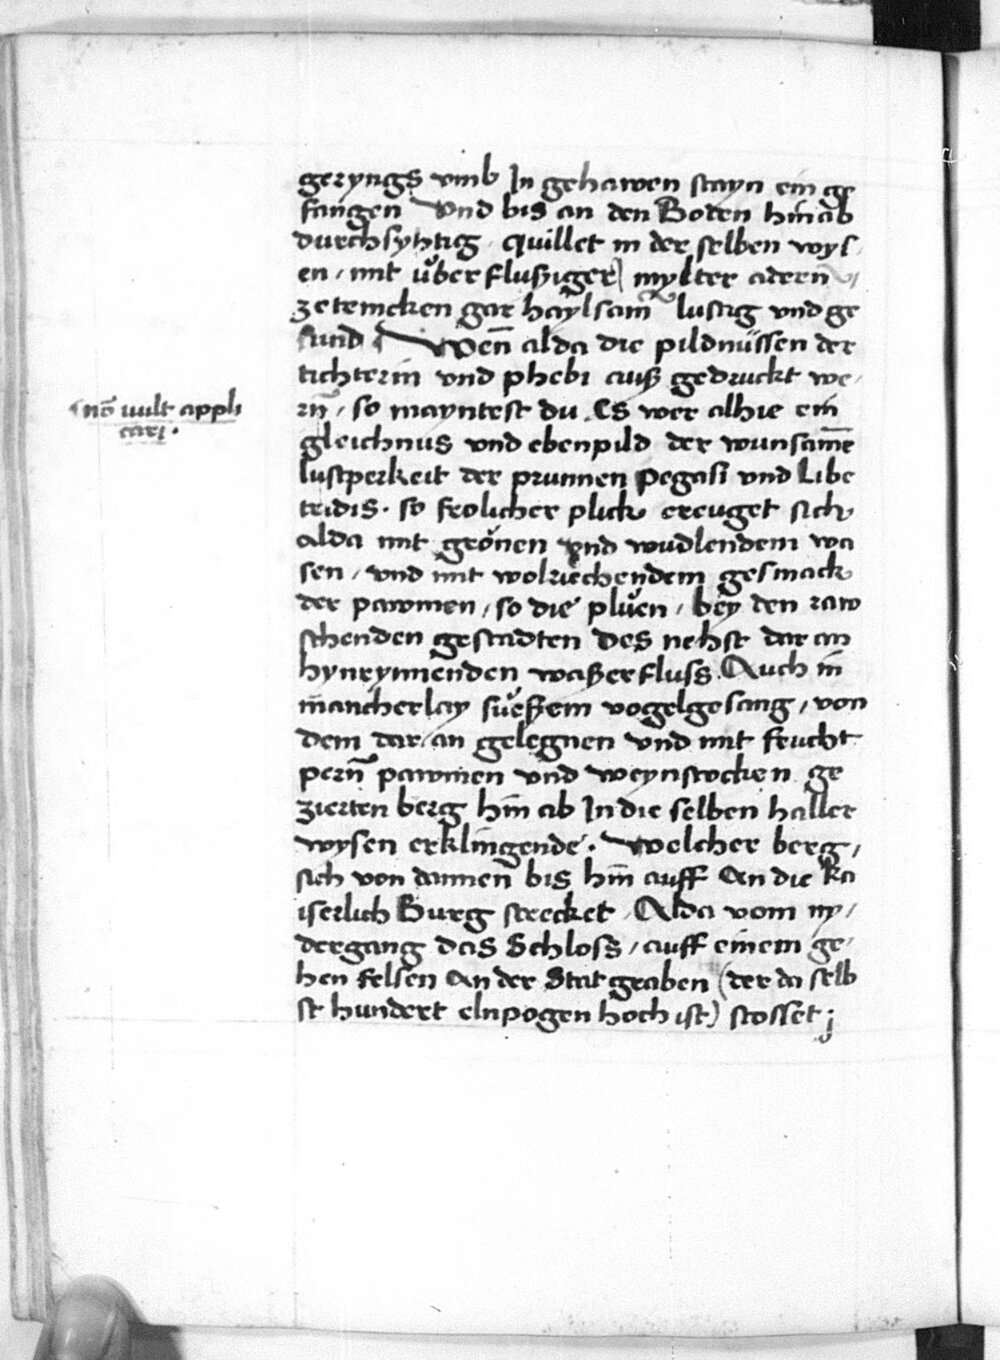 geryngs vmb In gehawen stayn ein ge
fangen Vnd bis an den Boden hinab
durchsyhtig / quillet in der selben wys /
en / mit überflußiger mylter adern /
ze trincken gar haylsam lustig vnd ge
sund / Wen̄ alda die pildnüssen der
tichterin vnd phebi auß gedruckt we /
rn̄ / so mayntest du / Es wer alhie ein
nō uult appli
cari .
gleichnus vnd ebenpild der wunsam̄e
lustperkeit der prunnen pegasi vnd Libe
tridis . so frolicher plick ereuget sich
alda mit grönen vnd wudlendem wa
sen / vnd mit wolriechendem gesmack
der pawmen / so die plüen / bey den raw
schenden gestadten des nehst dar an
hyneynnenden waßerfluss . Auch in
mancherlay süeßem vogelgesang / von
dem dar an gelegnen vnd mit frucht
pern̄ pawmen vnd weynstocken ge
zierten berg hin ab In die selben haller
wysen erklingende . Welcher berg /
sich von dannen bis hin auff An die ka
iserlich Burg strecket / Alda vom ny /
dergang das Schloß / auff einem ge /
hen felsen An der Stat graben (der da selb
st hundert elnpogen hoch ist) stosset ;